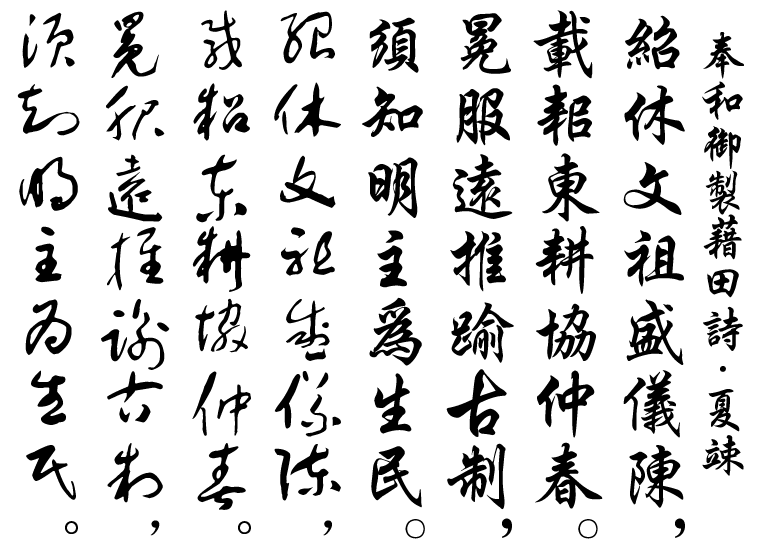 奉和御製藉田詩・夏竦
紹休文祖盛儀陳，
載耜東耕協仲春。
冕服遠推踰古制，
須知明主爲生民。
紹休文祖盛儀陳，
載耜東耕協仲春。
冕服遠推踰古制，
須知明主爲生民。